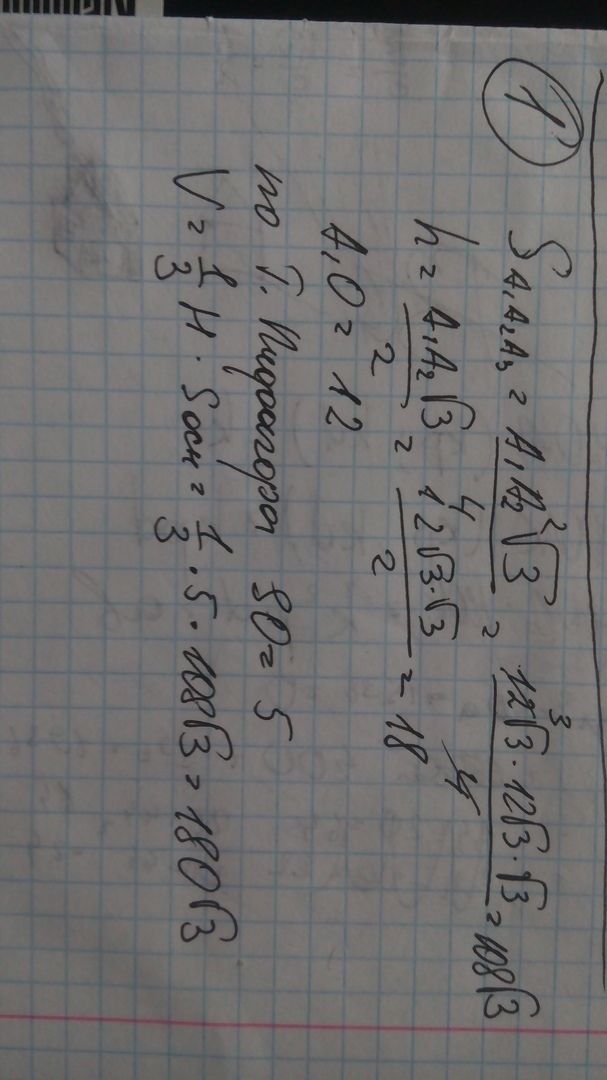 1
S A₁A₂A₃ = A₁A₂²√3 / 4 = 12√3 · 12√3 · √3 / 4 = 108√3
h = A₁A₂√3 / 2 = 12√3·√3 / 2 = 18
A₁O = 12
по т. Пифагора SO = 5
V = 1/3 H · Sосн = 1/3 · 5 · 108√3 = 180√3